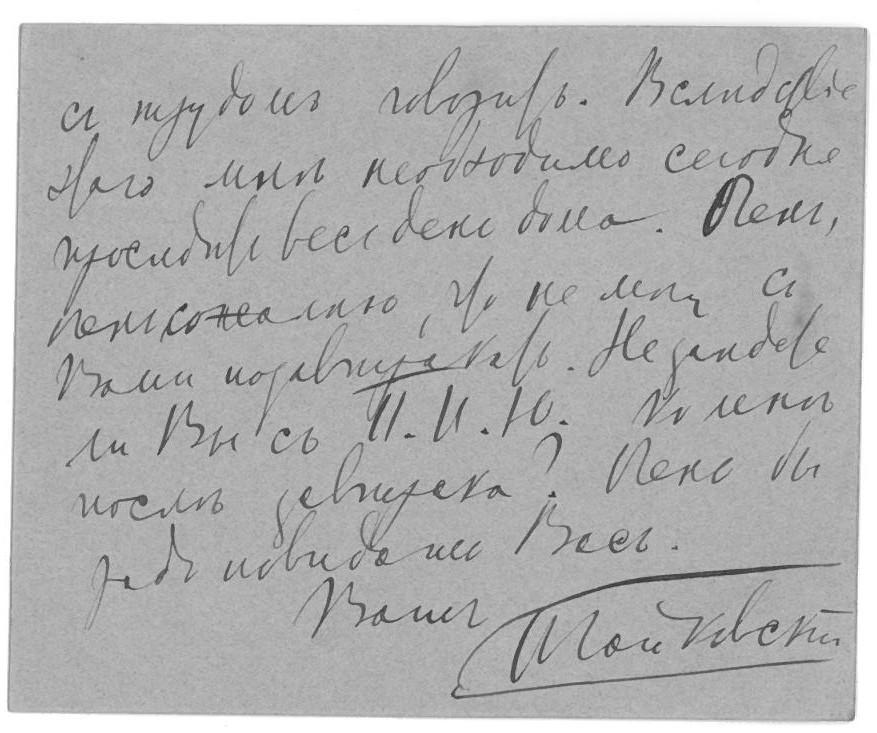 съ трудомъ говорить. Вслѣдствіе
этаго мнѣ необходимо сегодня
просидѣть весь день дома. Очень,
очень сожалѣю, что не могу съ
Вами позавтракать. Не зайдете
ли Вы съ П. И. Ю. ко мнѣ
послѣ завтрака? Очень бы
радъ повидать Васъ.
Вашъ
П. Чайковскій